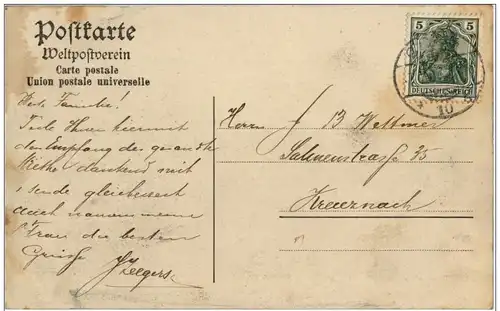 Postkarte
Weltpostverein
Carte postale
Union postale universelle
5 5
DEUTSCHES REICH
10
Familie!
Teile Ihnen hiermit
den Empfang der gesandten
dankend mit
sende gleichzeitig
auch namens meiner
Frau die besten
Grüsse
Zeegers
Herrn J B Wettmer
Salinenstrasse 35
Kreuznach